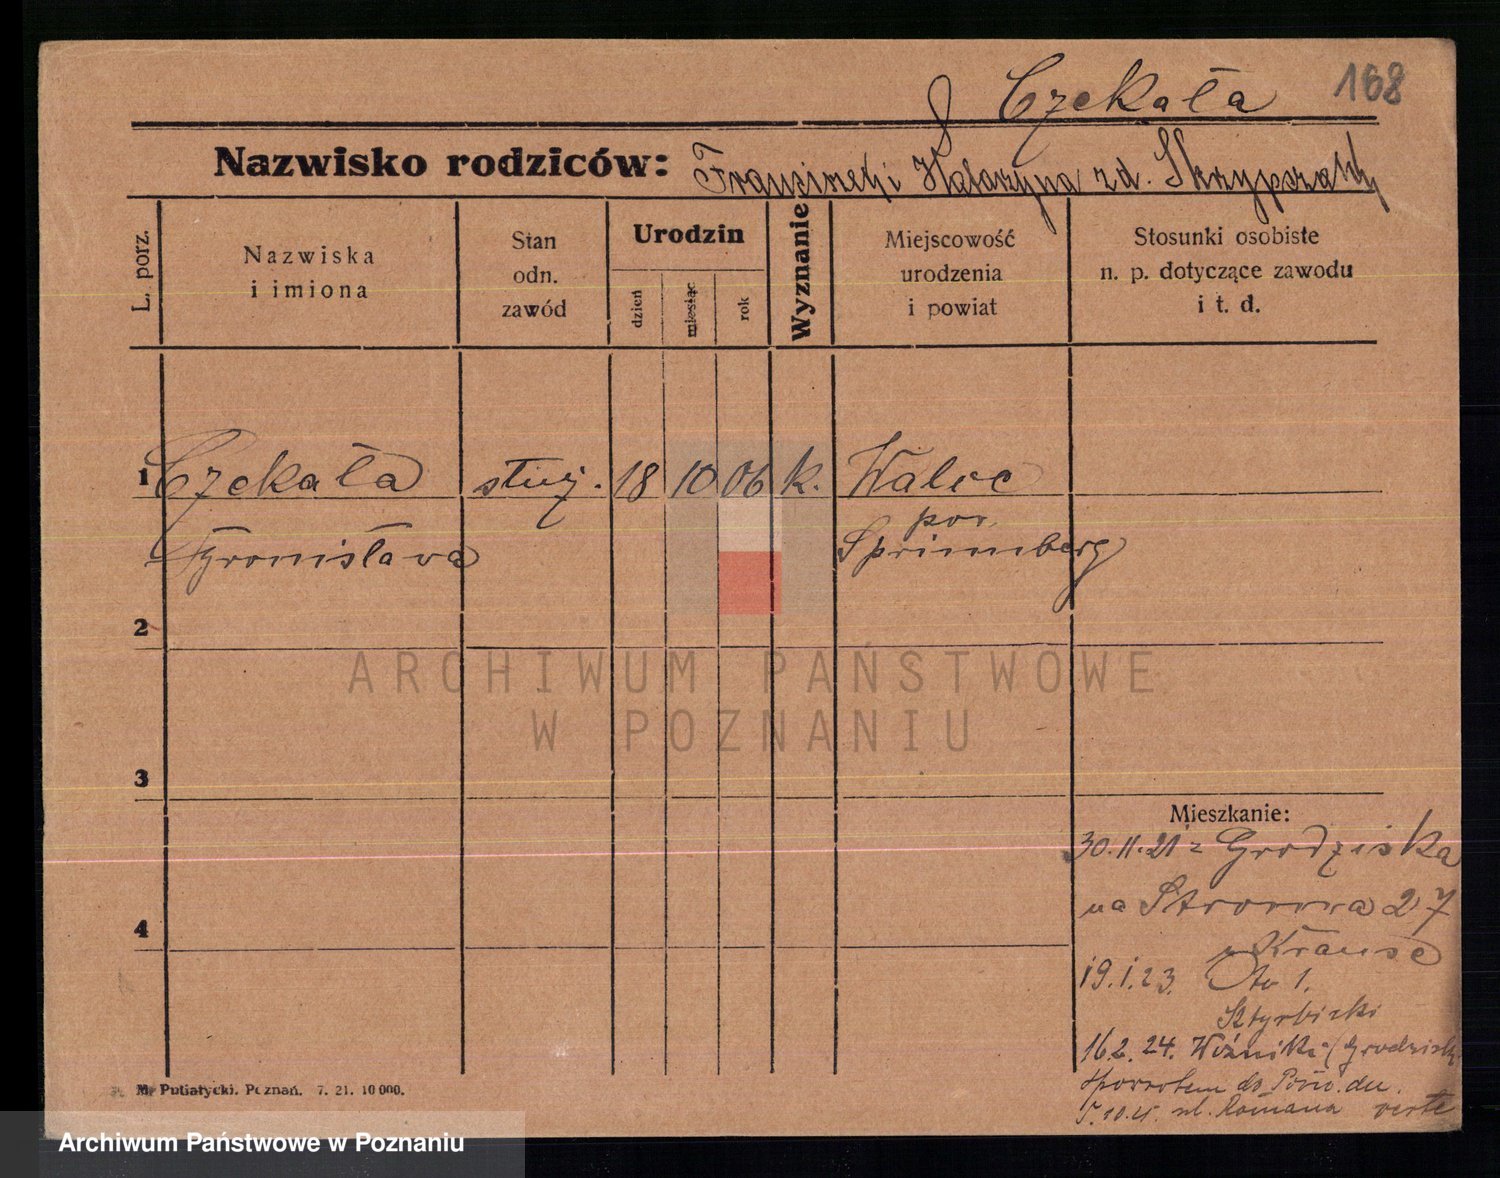 Czekała 168
Nazwisko rodziców: Franciszek i Katarzyna zd. Skrzypczak
L. porz.
Nazwiska
i imiona
Stan
odn.
zawód
Urodzin
dzień
miesiąc
rok
Wyznanie
Miejscowość
urodzenia
i powiat
Stosunki osobiste
n. p. dotyczące zawodu
i t. d.
1 Czekała służ. 18 10 06 k. Walce
pow.
Bronisława
2
3
4
Mieszkanie:
30.11.21 z Grodziska
na Stroma 27
u Krause
19.1.23. Oto 1.
16.2.24. Woźniki (Grodzisk
ul. Romana verte
M. Putiatycki. Poznań. 7. 21. 10 000.
ARCHIWUM PAŃSTWOWE
W POZNANIU
Archiwum Państwowe w Poznaniu